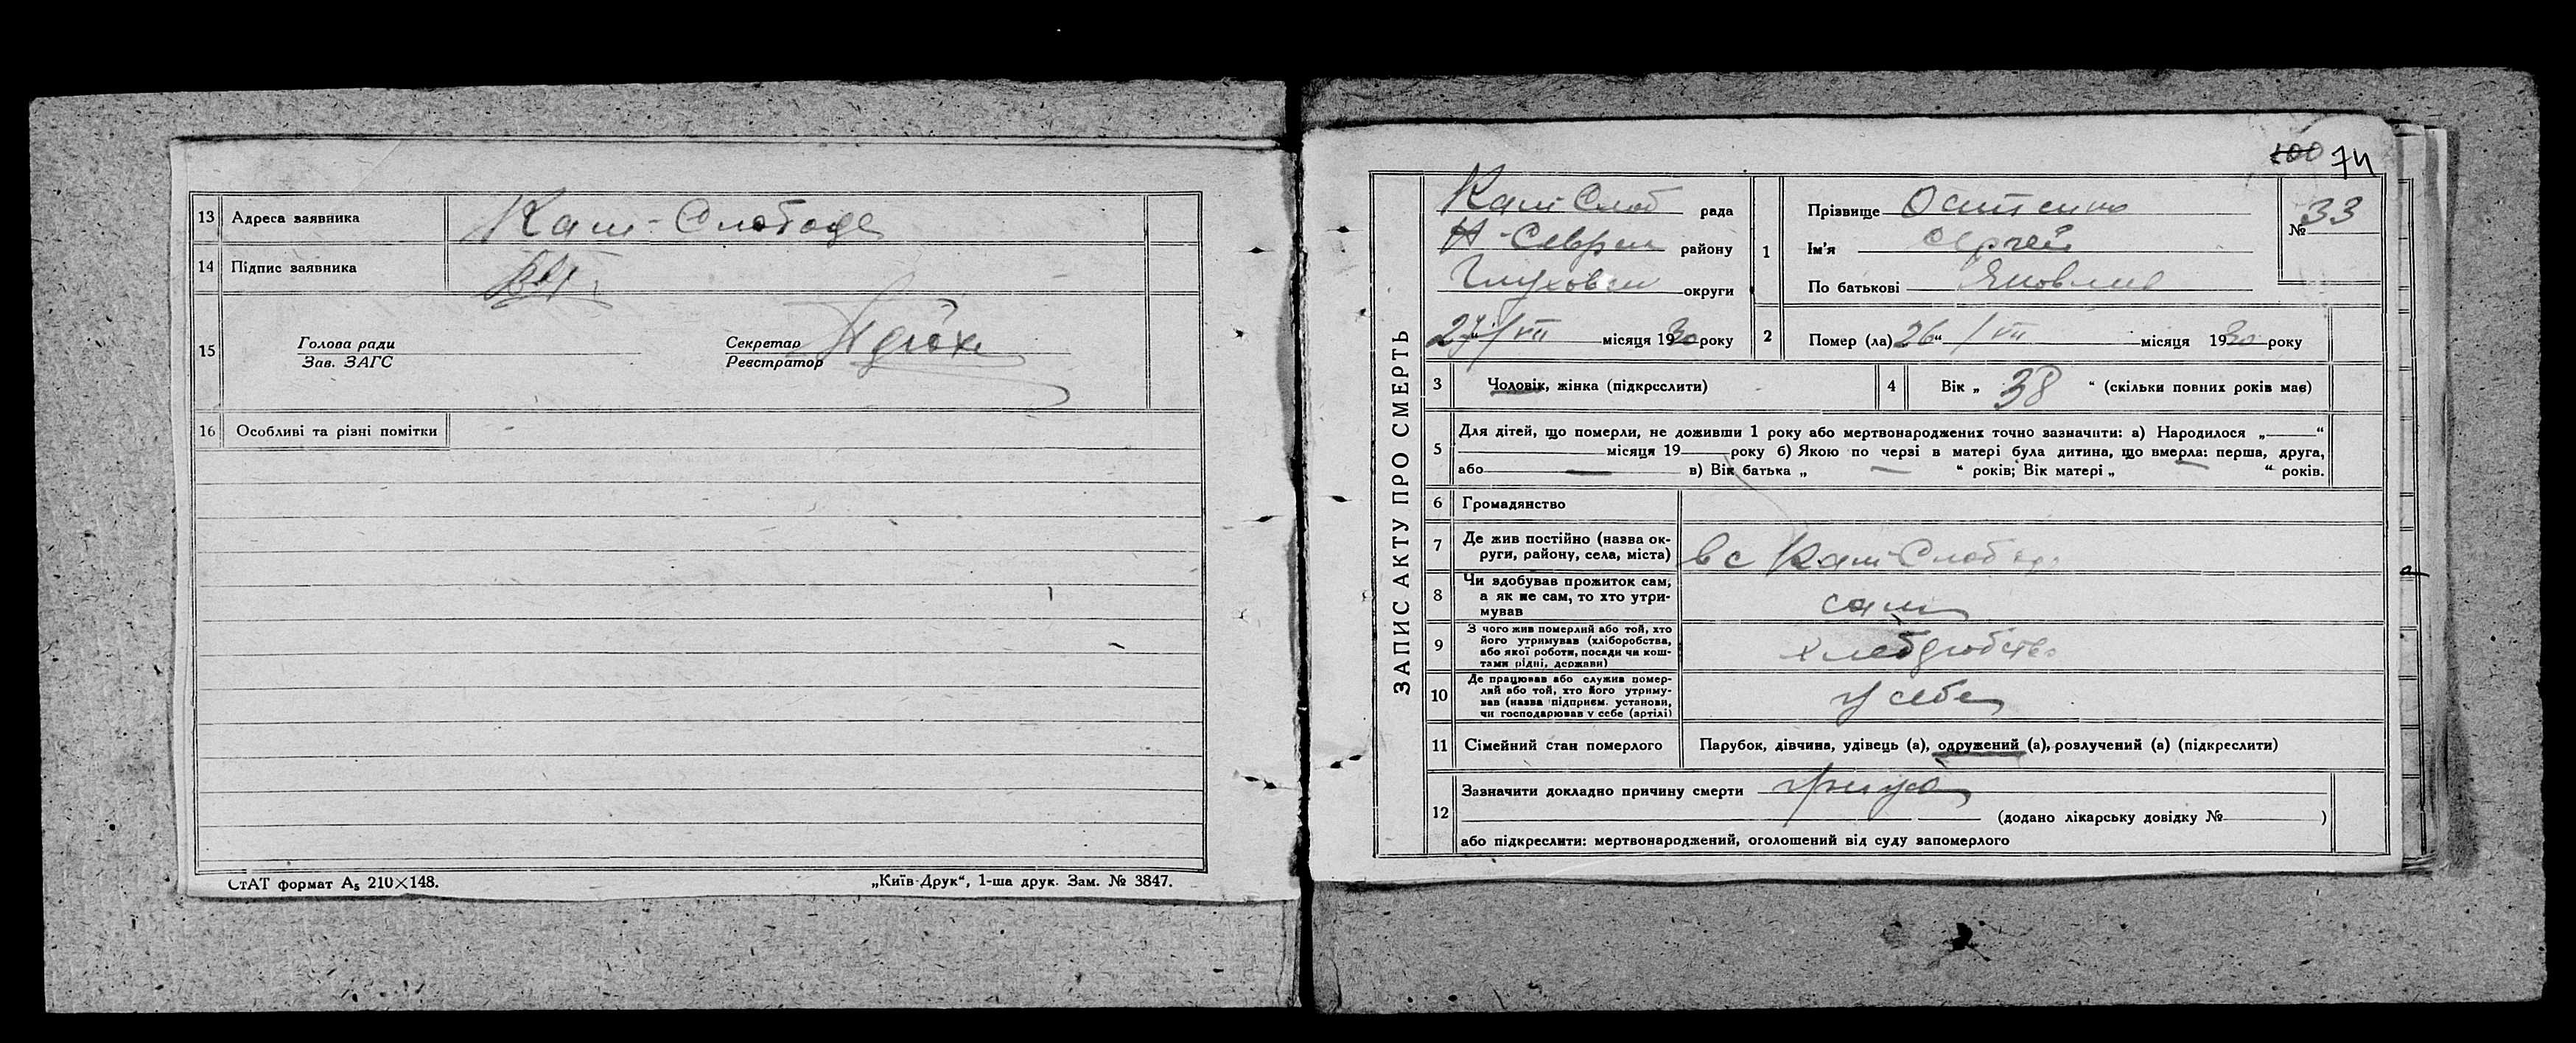 13 Адреса заявника Кам-Слобода
14 Підпис заявника
15 Голова ради
Зав. ЗАГС
Секретар
Реєстратор
16 Особливі та різні помітки
СтАТ формат А₅ 210×148.
„Київ-Друк“, 1-ша друк. Зам. № 3847.
100 74
ЗАПИС АКТУ ПРО СМЕРТЬ
Кам Слоб рада
Н-Север району
Глуховск округи
27/VII місяця 1930 року
1 Прізвище Осипенко
Ім'я Сергей
По батькові Яковлев
№ 33
2 Помер (ла) 26“/VII місяця 1930 року
3 Чоловік, жінка (підкреслити)
4 Вік „ 38 “ (скільки повних років має)
5 Для дітей, що померли, не доживши 1 року або мертвонароджених точно зазначити: а) Народилося „ “
місяця 19 року б) Якою по черзі в матері була дитина, що вмерла: перша, друга,
або в) Вік батька „ “ років; Вік матері „ “ років.
6 Громадянство
7 Де жив постійно (назва ок-
руги, району, села, міста) в с Кам-Слобода
8 Чи здобував прожиток сам,
а як не сам, то хто утри-
мував сам
9 З чого жив померлий або той, хто
його утримував (хліборобства,
або якої роботи, посади чи кош-
тами рідні, держави)
10 Де працював або служив помер-
лий або той, хто його утриму-
вав (назва підприєм. установи,
чи господарював у себе (артілі) у себе
11 Сімейний стан померлого Парубок, дівчина, удівець (а), одружений (а), розлучений (а) (підкреслити)
12 Зазначити докладно причину смерти
(додано лікарську довідку № )
або підкреслити: мертвонароджений, оголошений від суду запомерлого